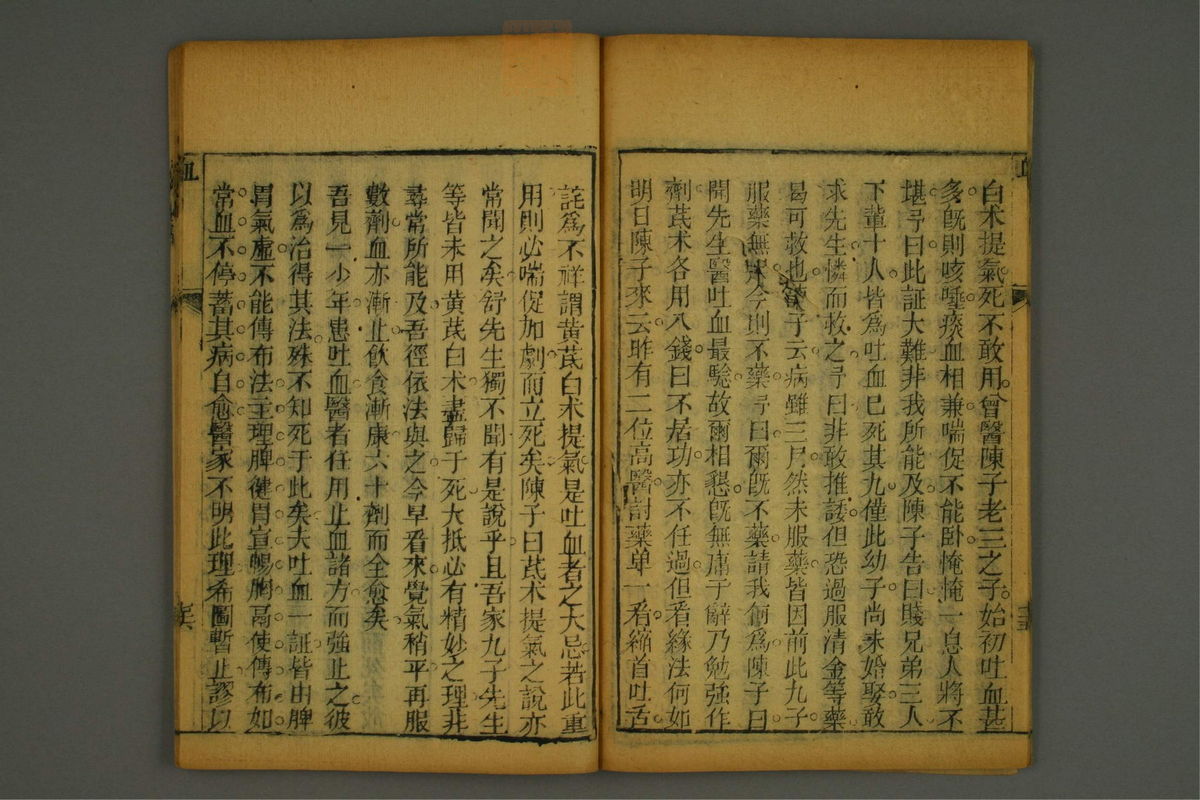 白术提氣死不敢用曾醫陳子老三之子始初吐血甚
多旣則咳唾痰血相兼喘促不能卧掩掩一息人將不
堪予曰此証大難非我所能及陳子告曰賤兄弟三人
下輩十人皆爲吐血已死其九僅此幼子尚未婚娶敢
求先生憐而救之予曰非敢推諉但恐過服清金等藥
曷可救也陳子云病雖三月然未服藥皆因前此九子
服藥無一今則不藥予曰爾旣不藥請我何爲陳子曰
聞先生醫吐血最騐故爾相懇旣無庸于辭乃勉強作
劑芪术各用八錢曰不居功亦不任過但看緣法何如
明日陳子來云昨有二位高醫討藥单一看縮首吐舌
詫爲不祥謂黄芪白术提氣是吐血者之大忌若此重
用則必喘促加劇而立死矣陳子曰芪术提氣之說亦
常聞之矣舒先生獨不聞有是說乎且吾家九子先生
等皆未用黄芪白术盡歸于死大抵必有精妙之理非
尋常所能及吾徑依法與之今早看來覺氣稍平再服
數劑血亦漸止飲食漸康六十劑而全愈矣
吾見一少年患吐血醫者任用止血諸方而強止之彼
以爲治得其法殊不知死于此矣夫吐血一証皆由脾
胃氣虛不能傳布法主理脾健胃宣暢胸膈使傳布如
常血不停蓄其病自愈醫家不明此理希圖暫止謬以
血